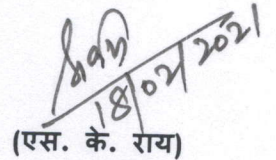 18/02/2021
(एस. के. राय)